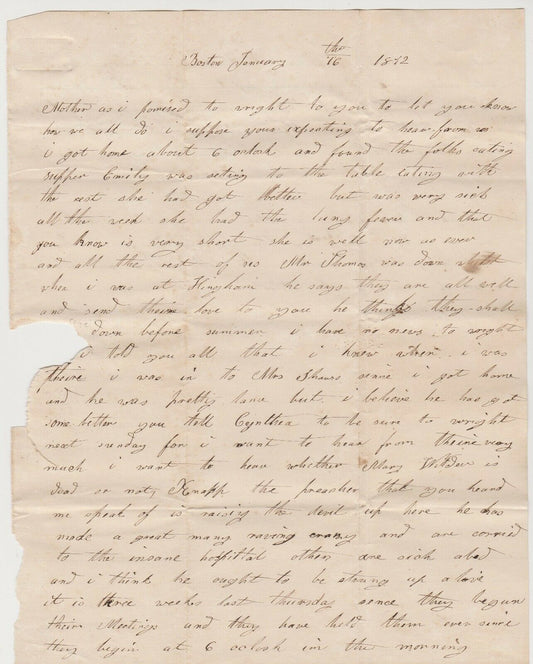 Boston January 16 tho 1842
Mother as i promised to wright to you to let you know
how we all do i suppose your expecting to hear from us
i got home about 6 oclock and found the folks eating
supper Emily was setting to the table eating with
the rest she had got better but was very sick
all the week she had the lung fever and that
you know is very short she is well now as ever
and all the rest of us Mr Thomas was down
when i was at Hingham he says they are all well
and send theire love to you he thinks they shall
down before summer i have no news to wright
i told you all that i knew when i was
theire i was in to Mrs Shaws sence i got home
and he was pretty lame but i believe he has got
some better you tell Cynthea to be sure to wright
next sunday for i want to hear from theire very
much i want to hear whether Mary Wilder is
dead or not Knapp the preacher that you heard
me speak of is raising the devil up here he has
made a great many raving crazy and are carried
to the insane hospittal others are sick abed
and i think he ought to be strung up alive
it is three weeks last thursday sence they begun
their Meetings and they have held them ever since
they begin at 6 oclosh in the morning